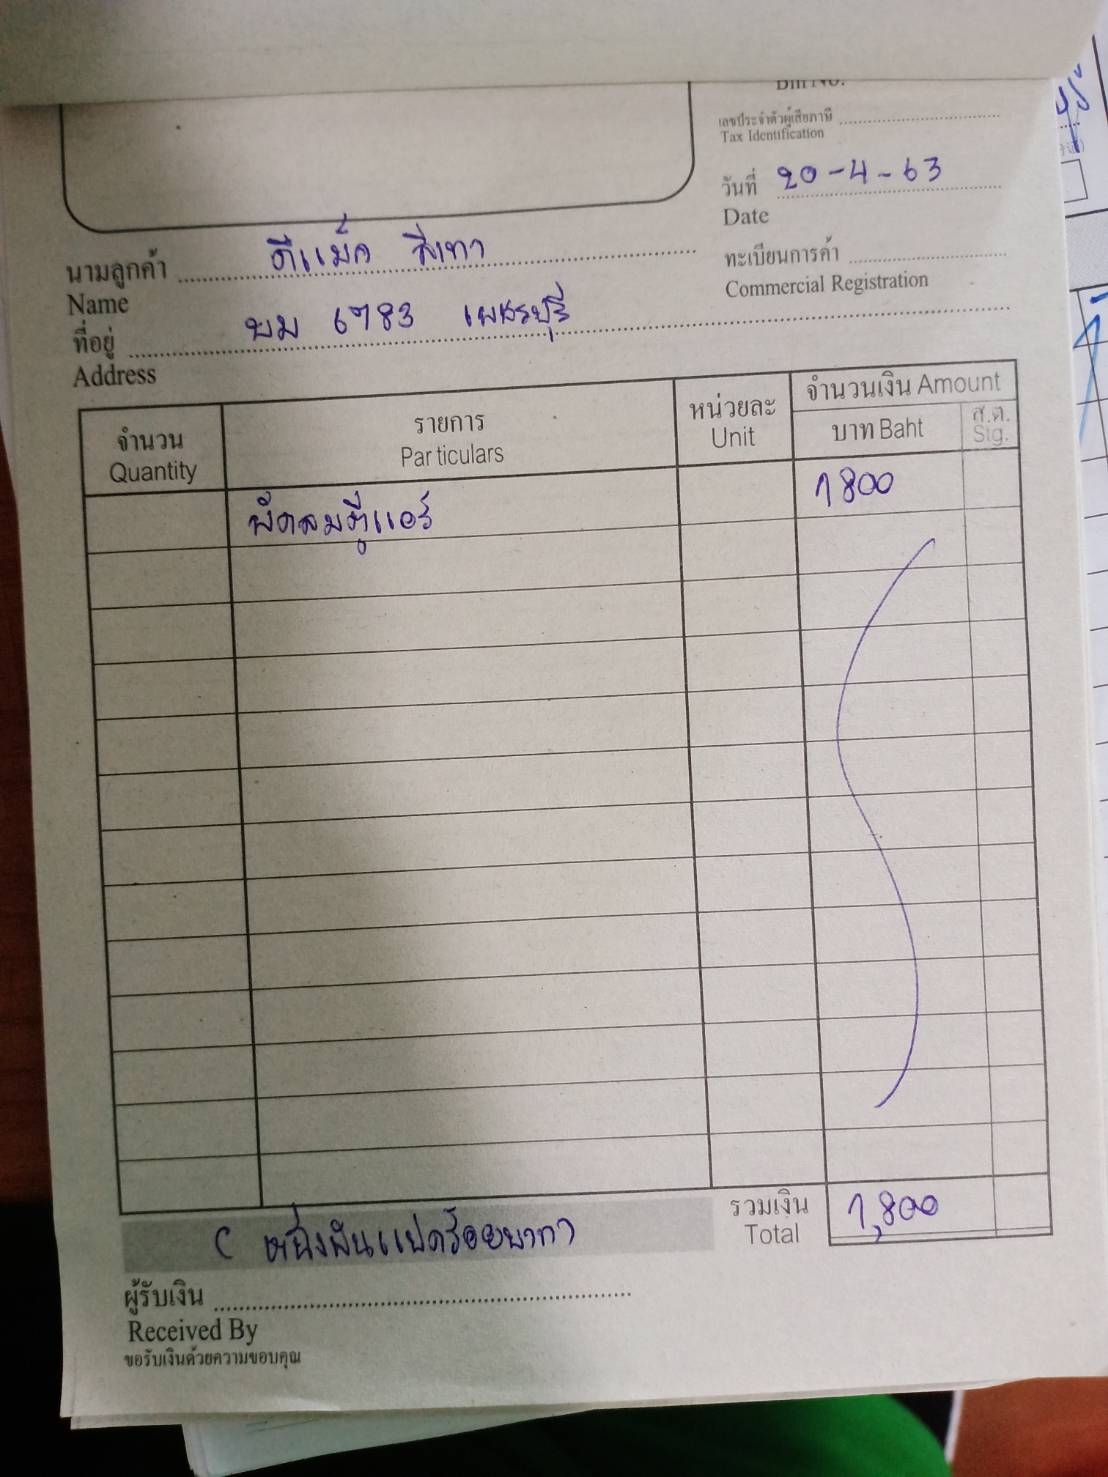 เลขประจำตัวผู้เสียภาษี
Tax Identification
วันที่ 20-4-63
Date
นามลูกค้า ดีแม็ค สีเทา
Name
ทะเบียนการค้า
Commercial Registration
ที่อยู่ บม 6783 เพชรบุรี
Address
จำนวน รายการ หน่วยละ จำนวนเงิน Amount
Quantity Particulars Unit บาท Baht ส.ต. Stg.
พัดลมตู้แอร์ 1800
รวมเงิน 1,800
Total
( หนึ่งพันแปดร้อยบาท)
ผู้รับเงิน
Received By
ขอรับเงินด้วยความขอบคุณ